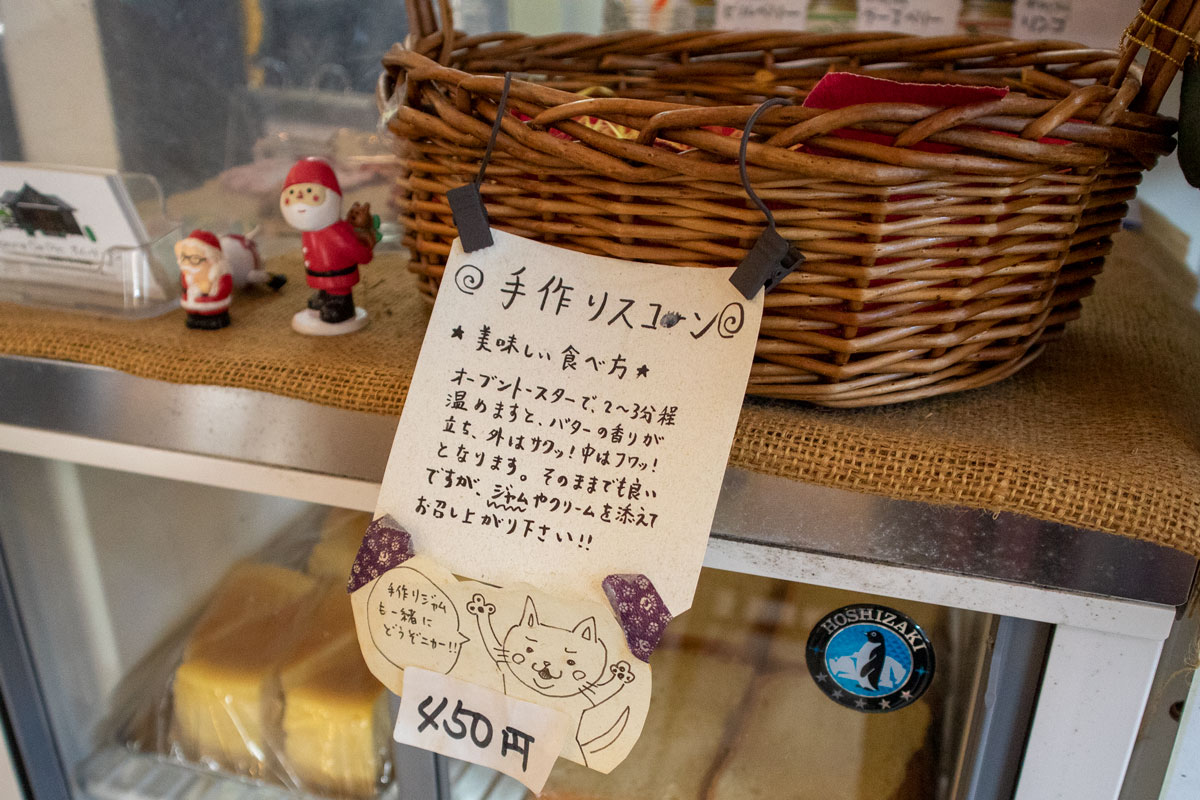 手作りスコーン
★美味しい食べ方★
オーブントースターで、2〜3分程
温めますと、バターの香りが
立ち、外はサクッ!中はフワッ!
となります。そのままでも良い
ですが、ジャムやクリームを添えて
お召し上がり下さい!!
手作りジャム
も一緒に
どうぞニャー!!
450円
HOSHIZAKI